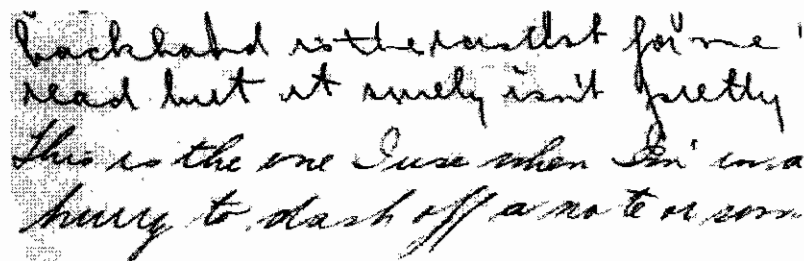 backhand is the easiest for me
read but it surely isn't pretty
This is the one I use when I'm in a
hurry to dash off a note or som